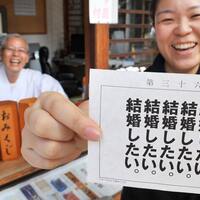 おみくじ
第三十六
結婚したい。
結婚したい。
結婚したい。
結婚したい。